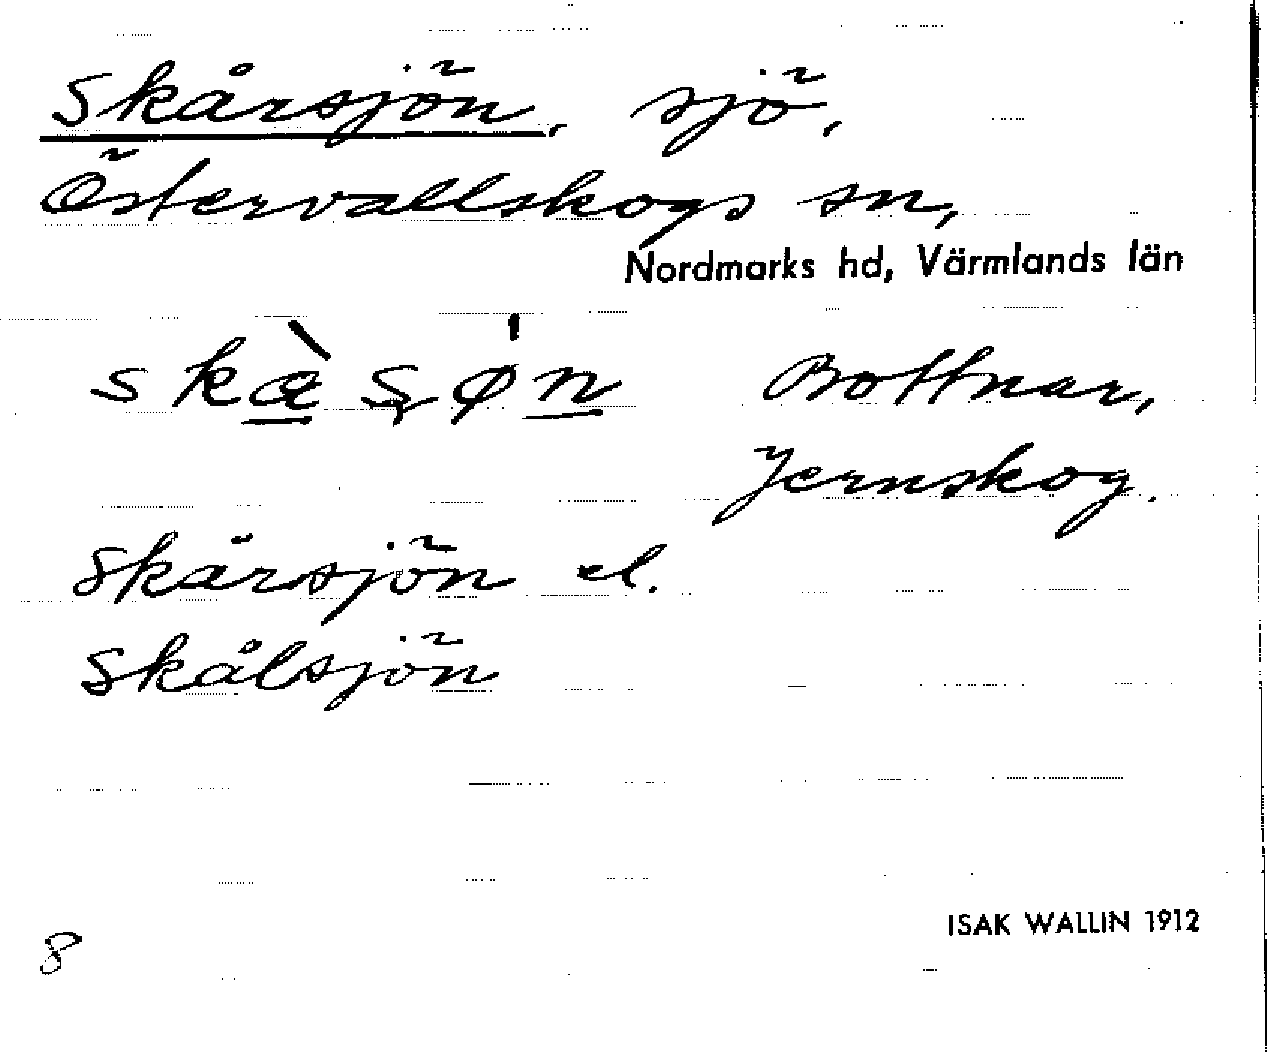 Skårsjön, sjö,
Östervallskogs sn,
Nordmarks hd, Värmlands län
skæ̀ʂø'n Bottnar,
Jernskog.
Skärsjön el.
Skålsjön
ISAK WALLIN 1912
8